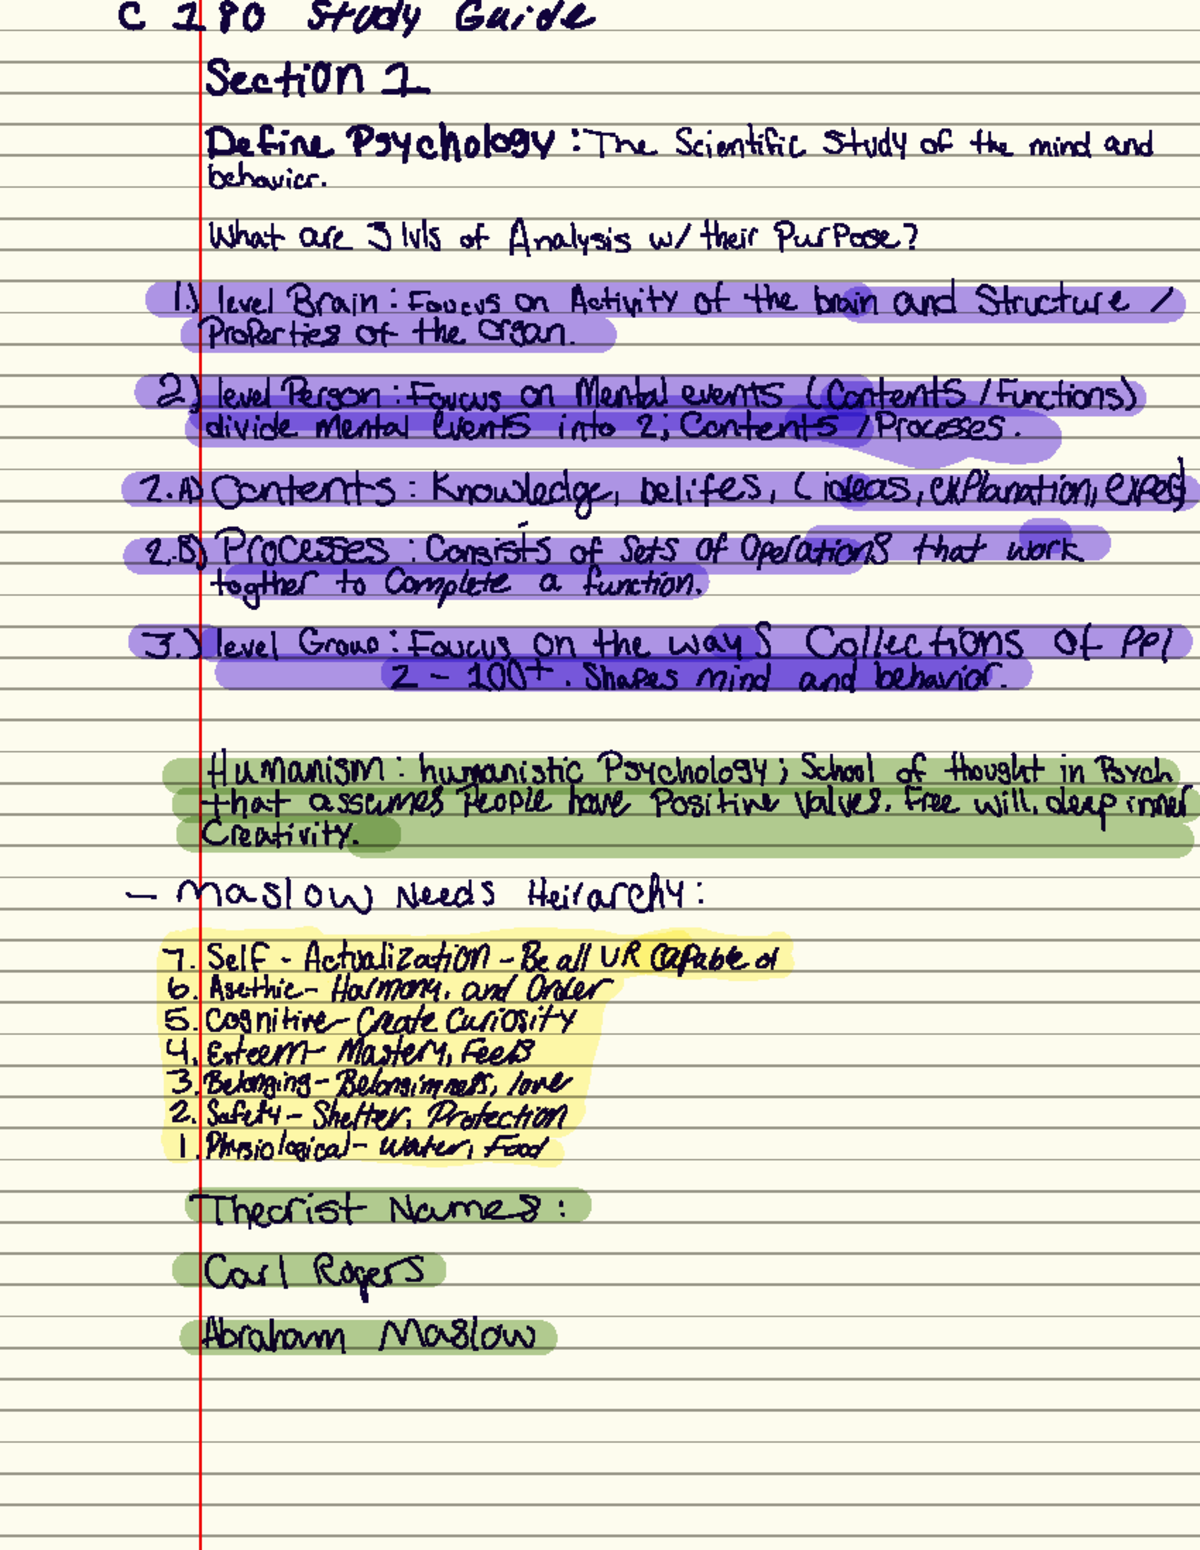 C 180 Study Guide
Section 1
Define Psychology: The Scientific Study of the mind and
behavior.
What are 3 lvls of Analysis w/ their Purpose?
1.) level Brain: Foucus on Activity of the brain and Structure /
Properties of the organ.
2.) level Person: Foucus on Mental events (Contents / Functions)
divide mental Events into 2; Contents / Processes.
2.A) Contents: Knowledge, belifes, (ideas, explanation, expec)
2.B) Processes: Consists of Sets of Operations that work
togther to Complete a function.
3.) level Group: Foucus on the ways Collections of ppl
2 - 100+. Shapes mind and behavior.
Humanism: humanistic Psychology; School of thought in Psych
that assumes People have Positive Values. Free will, deep inner
Creativity.
- Maslow Needs Heirarchy:
7. Self - Actualization - Be all UR Capable of
6. Asethic - Harmony, and Order
5. Cognitive - Create Curiosity
4. Esteem - Mastery, Feels
3. Belonging - Belongimness, love
2. Safety - Shelter, Protection
1. Physiological - Water, Food
Theorist Names:
Carl Rogers
Abraham Maslow